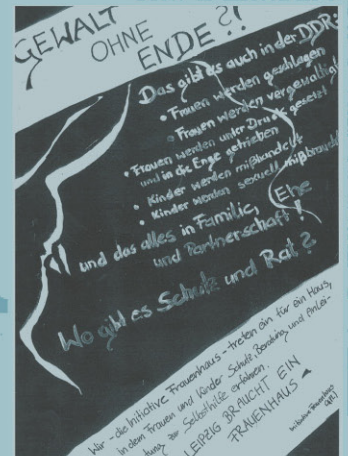 GEWALT
OHNE
ENDE?!
Das gibt es auch in der DDR:
• Frauen werden geschlagen
• Frauen werden vergewaltigt
• Frauen werden unter Druck gesetzt
und in die Enge getrieben
• Kinder werden mißhandelt
• Kinder werden sexuell mißbraucht
und das alles in Familie, Ehe
und Partnerschaft!
Wo gibt es Schutz und Rat?
Wir - die Initiative Frauenhaus - treten ein für ein Haus,
in dem Frauen und Kinder Schutz, Beratung und Anlei-
tung zur Selbsthilfe erfahren.
LEIPZIG BRAUCHT EIN
FRAUENHAUS
Initiative Frauenhaus